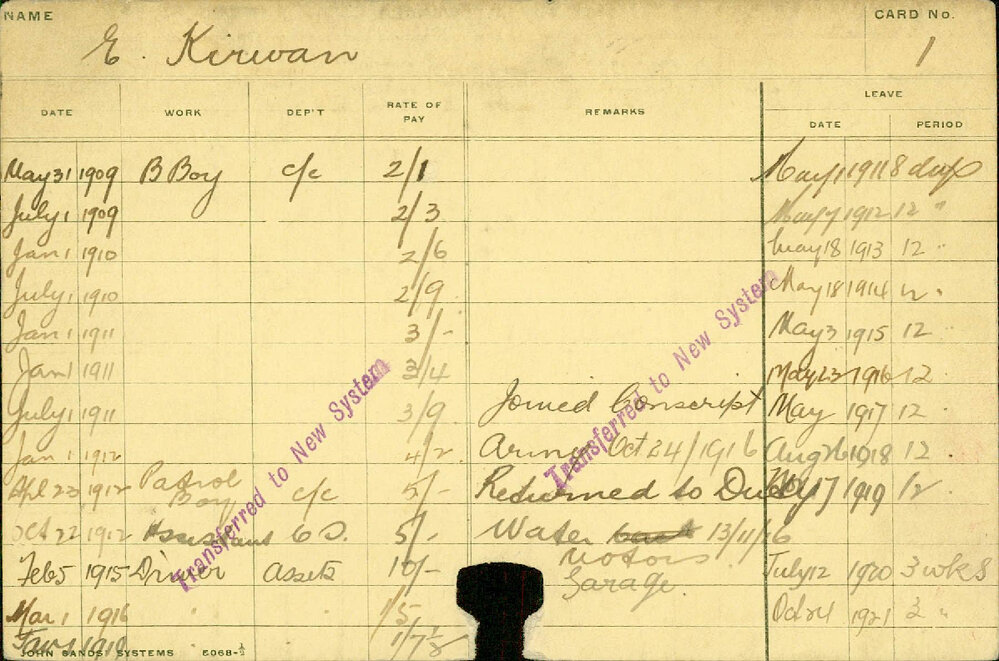 NAME E. Kirwan CARD No. 1
LEAVE
DATE WORK DEP'T RATE OF PAY REMARKS DATE PERIOD
May 31 1909 B Boy c/c 2/1 May 1 1911 8 days
July 1 1909 2/3 May 7 1912 12 "
Jan 1 1910 2/6 May 18 1913 12 "
July 1 1910 2/9 May 18 1914 12 "
Jan 1 1911 3/- May 3 1915 12 "
Jan 1 1911 3/4 May 23 1916 12
July 1 1911 3/9 Joined Conscript May 1917 12 "
Jan 1 1912 4/2 Army Oct 24/1916 Aug 26 1918 12 .
Apl 23 1912 Patrol Boy c/c 5/- Returned to Duty 17 1919 12
Oct 22 1912 Assistant 5/- Water 13/11/16
Motors
Feb 5 1915 Driver Assets 10/- Garage. July 12 1920 3 wks
Mar 1 1916 " Oct 24 1921 3 "
1/7½
Transferred to New System
Transferred to New System
JOHN SANDS' SYSTEMS 5068-½